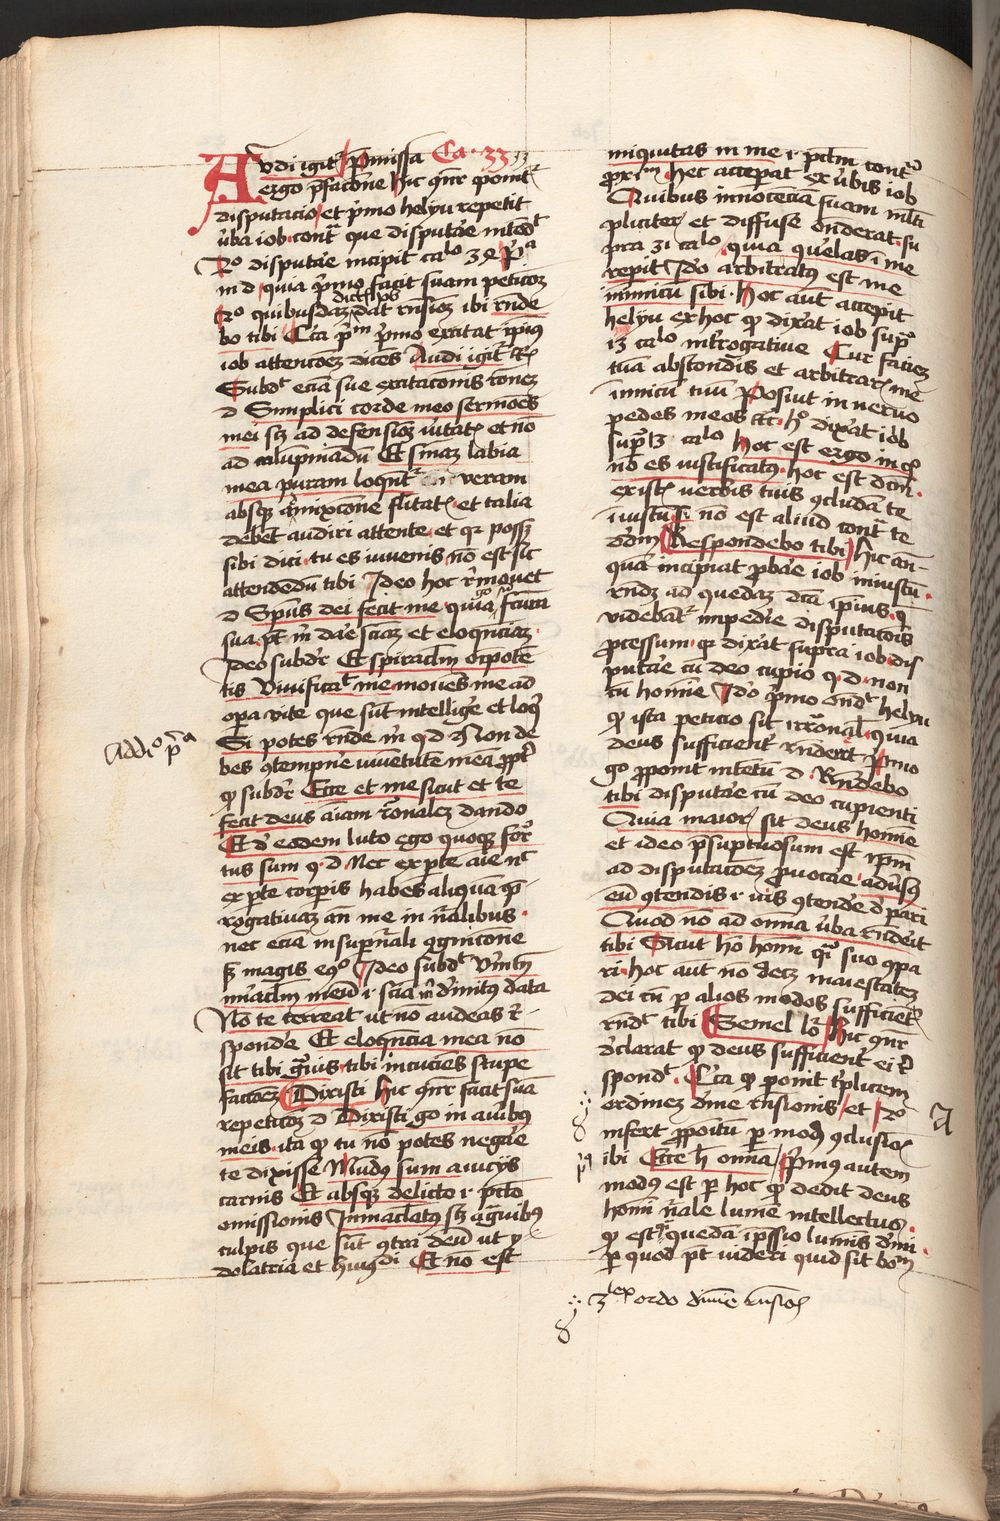 Audi igit᷑ Pͥmissa Ca · 33
ergo p̄facōne hic q̄nr ponit᷑
disputacio et pͥmo helyu repetit
v̓ba iob cont᷑ que disputar̄e intēd᷑
2º disputar̄e incipit caº 34 pͥª
in d quia pͥmo facit suam peticōꝫ
2º quibusdaꝫ dictis eiꝰ dat rn̄siōꝫ ibi rn̄de
bo tibi Cͥca pͥm pͥmo excitat ip̄ius
iob attencōeꝫ dicēs Audi igit᷑ ⁊c̄
Subd᷑ eciā sue excitacōnis rōneꝫ
d Simplici corde meo sermōes
mei scꝫ ad defensiōꝫ v̓itat̄ et nō
ad calūpniādū Et sniaꝫ labia
mea puram loquēt᷑ veram
absqꝫ amixcōne fl̄itat̄ et talia
debēt audiri attente et qꝛ possꝫ
sibi dici tu es iuuenis nō est sic
attendēdū tibi Ideo hoc r̄mouet
d Spūs dei fecit me quia g̊ fc̄tura
sua pt̄ m̄ dar̄e sciāꝫ et eloquēciaꝫ
Ideo subdr̄ Et spiraclm oīpotē
tis viuificat᷑ me mouēs me ad
opera vite que sūt intelligēr̄ et loqͥ
Si potes rn̄de m̄ q d Nō de
bes ꝯtempnēr̄ iuuentutē meā ꝓpt̓
qͦ subdr̄ Ecce et me sicut et te
fecit deus aīam rōnaleꝫ dando
Et d̓ eodem luto ego quoqꝫ for᷑
tus sum q d Nec ex pte aīe nͨ
ex pte corpis habes aliquā p̄
rogatiuaꝫ an̄ me in nālibus
nec eciā in supnāli ꝯgnicōne
sꝫ magis eqº Ideo subd᷑ v̓mtn̄
mīaclm meū i sciā m̄ diuinitꝰ data
Nō te terreat ut nō audeas r̄
spondēr̄ Et eloquēcia mea nō
sit tibi gͣuis tibi incuciēs stupe
factōeꝫ Dixisti hic q̄nr facit suā
repeticōꝫ d Dixisti go in auribꝰ
meis ita qͦ tu nō potes negar̄e
te dixisse Mūdus sum a viciis
carnis Et absqꝫ delicto i pctō
omissionis Inmaclatꝰ scꝫ a gͣuibꝰ
culpis que sūt ꝯtra deū ut y
dolatria et huiꝰdi Et nō est
Addiº pͥª
iniquitas in me i pctm cont᷑
ꝓxīm hec acceperat ex v̓bis iob
Quibus innocenciā suam mlti
pliciter et diffuse ōnderat su
pra 31 caº quia querelas ī me
repit Ido arbitratꝰ est me
inimicū sibi Hoc aūt accepit
helyu ex hoc qͦ dixat iob supͣ
13 caº int̓rogatiue Cur faciēꝫ
tuā abscondis et arbitrar̄ me
inimicū tuū Posuit in neruo
pedes meos ⁊c hº dixat iob
supͣ 13 caº Hoc est ergo in qͦ
nō es iustificatꝰ hoc est dcm
existē verbis tuis ꝯcludam te
iniustū nō est aliud cont᷑ te
odm̄ Respondebo tibi hic an̄
quā incipiat ꝓbar̄e iob iniustū
rn̄dꝫ ad quedaꝫ dcā ip̄ius q̄
videbant᷑ impedir̄e disputacōis
ꝓcessum qꝛ dixat supra iob dis
putar̄e cū deo cupio q d non
cū homīe Ido pͥmo ōnd᷑ helyu
qͦ ista peticio sit irrōnal quia
deus sufficient̓ rn̄deret Pͥmo
go ꝓponit intētū d Rn̄debo
tibi disputar̄e cū deo cupienti
Quia maior sit deus homīe
et ideo p̄suptuosum est ip̄m
ad disputacōeꝫ ꝓuocar̄e adūsꝰ
eū ꝯtendis i vis ꝯtendēr̄ d pari
Quod nō ad om̄ia v̓ba rn̄derit
tibi Sicut hō homī qͥ suo ꝯpa
ri hoc aūt nō decꝫ maiestateꝫ
dei cū p alios modos sufficient̓
rn̄d᷑ tibi Semel loꝗ̄ Hic q̄nr
d̓clarat qͦ deus sufficient̓ ei r̄
spond᷑ Cͥca qͦ ponit tͥplicem
ordineꝫ diuīe rn̄sionis et 2º
infert ꝓpoitū p modū ꝯclusiōꝫ
ibi Ecce hͨ om̄ia Pͥmus autem
modus est p hoc qͦ dedit deus
homī nāle lumē intellectus
qͦ est quedā ip̄ssio lumīs diuī
p quod pt̄ videri quid sit boᵐ
pͥꝰ
a
3ex ordo diuīe rn̄siōꝫ